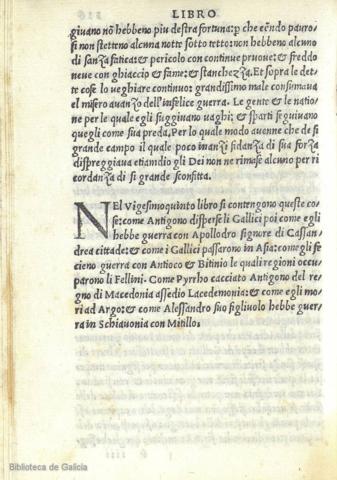 LIBRO
giuano nō hebbeno piu destra fortuna: p che eēndo pauro⸗
si non stetteno alcuna notte sotto tetto: non hebbeno alcuno
di sanza fatica: & pericolo con continue pruoue: & freddo
neue con ghiaccio & fame: & stanchezza. Et sopra le det⸗
te cose lo ueghiare continuo: grandissimo male consumaua
el misero auanzo dell'infelice guerra. Le gente & le natio⸗
ne per le quale egli fuggiuano uaghi: & sparti seguiuano
quegli come sua preda, Per lo quale modo auenne che de si
grande campo il quale poco inanzi fidanza di sua forza
dispreggiaua etiamdio gli Dei non ne rimase alcuno per ri
cordanza di si grande sconfitta.
NEl Vigesimoquinto libro si contengono queste co⸗
se: come Antigono disperse li Gallici poi come egli
hebbe guerra con Apollodro signore di Cassan⸗
drea cittade: & come i Gallici passarono in Asia: come gli fe
cieno guerra con Antioco & Bitinio le quali regioni occu⸗
parono li Fellini. Come Pyrrho cacciato Antigono del re⸗
gno di Macedonia assedio Lacedemonia: & come egli mo⸗
ri ad Argo: & come Alessandro suo figliuolo hebbe guer⸗
ra in Schiauonia con Mitillo:
Biblioteca de Galicia